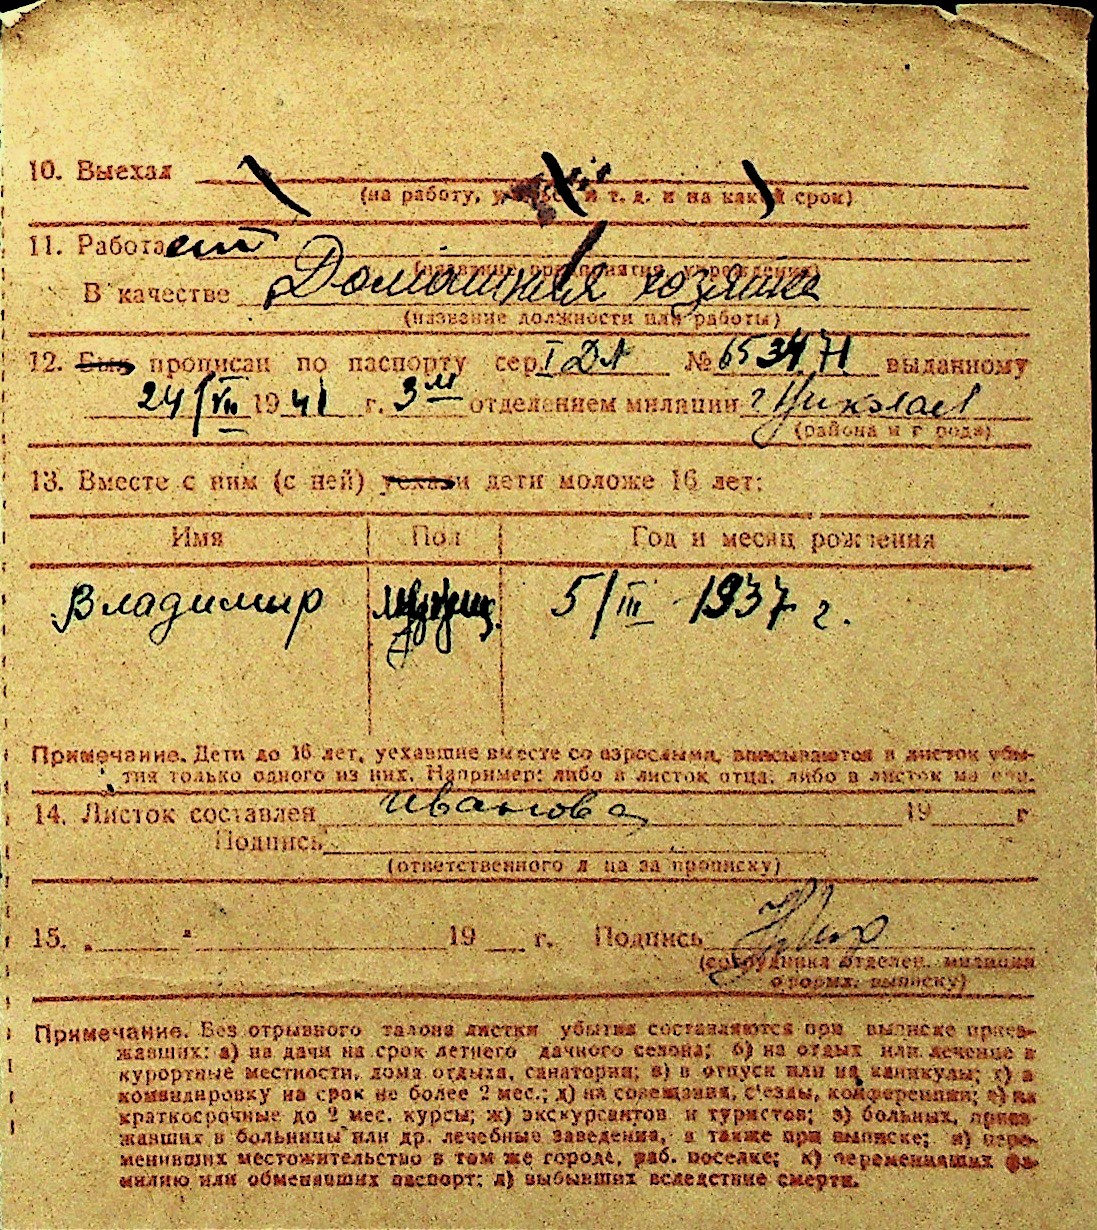 10. Выехал
(на работу, и т. д. и на какой срок)
11. Работает
(название предприятия, учреждения)
В качестве Домашняя хозяйка
(название должности или работы)
12. Был прописан по паспорту сер. I ДЛ № 653471 выданному
24/VII 1941 г. 3м отделением милиции г Николаев
(района и города)
13. Вместе с ним (с ней) уехали дети моложе 16 лет:
Имя Пол Год и месяц рождения
Владимир мужск. 5/III 1937 г.
Примечание. Дети до 16 лет, уехавшие вместе со взрослыми, вписываются в листок убы-
тия только одного из них. Например: либо в листок отца, либо в листок матери.
14. Листок составлен Иванова 19 г
Подпись
(ответственного лица за прописку)
15. „ " 19 г. Подпись
(сотрудника отделен. милиции
оформ. выписку)
Примечание. Без отрывного талона листки убытия составляются при выписке приез-
жавших: а) на дачи на срок летнего дачного сезона; б) на отдых или лечение в
курортные местности, дома отдыха, санатории; в) в отпуск или на каникулы; г) в
командировку на срок не более 2 мес.; д) на совещания, с'езды, конференции; е) на
краткосрочные до 2 мес. курсы; ж) экскурсантов и туристов; з) больных, приез-
жавших в больницы или др. лечебные заведения, а также при выписке; и) пере-
менивших местожительство в том же городе, раб. поселке; к) переменивших фа-
милию или обменявших паспорт; л) выбывших вследствие смерти.